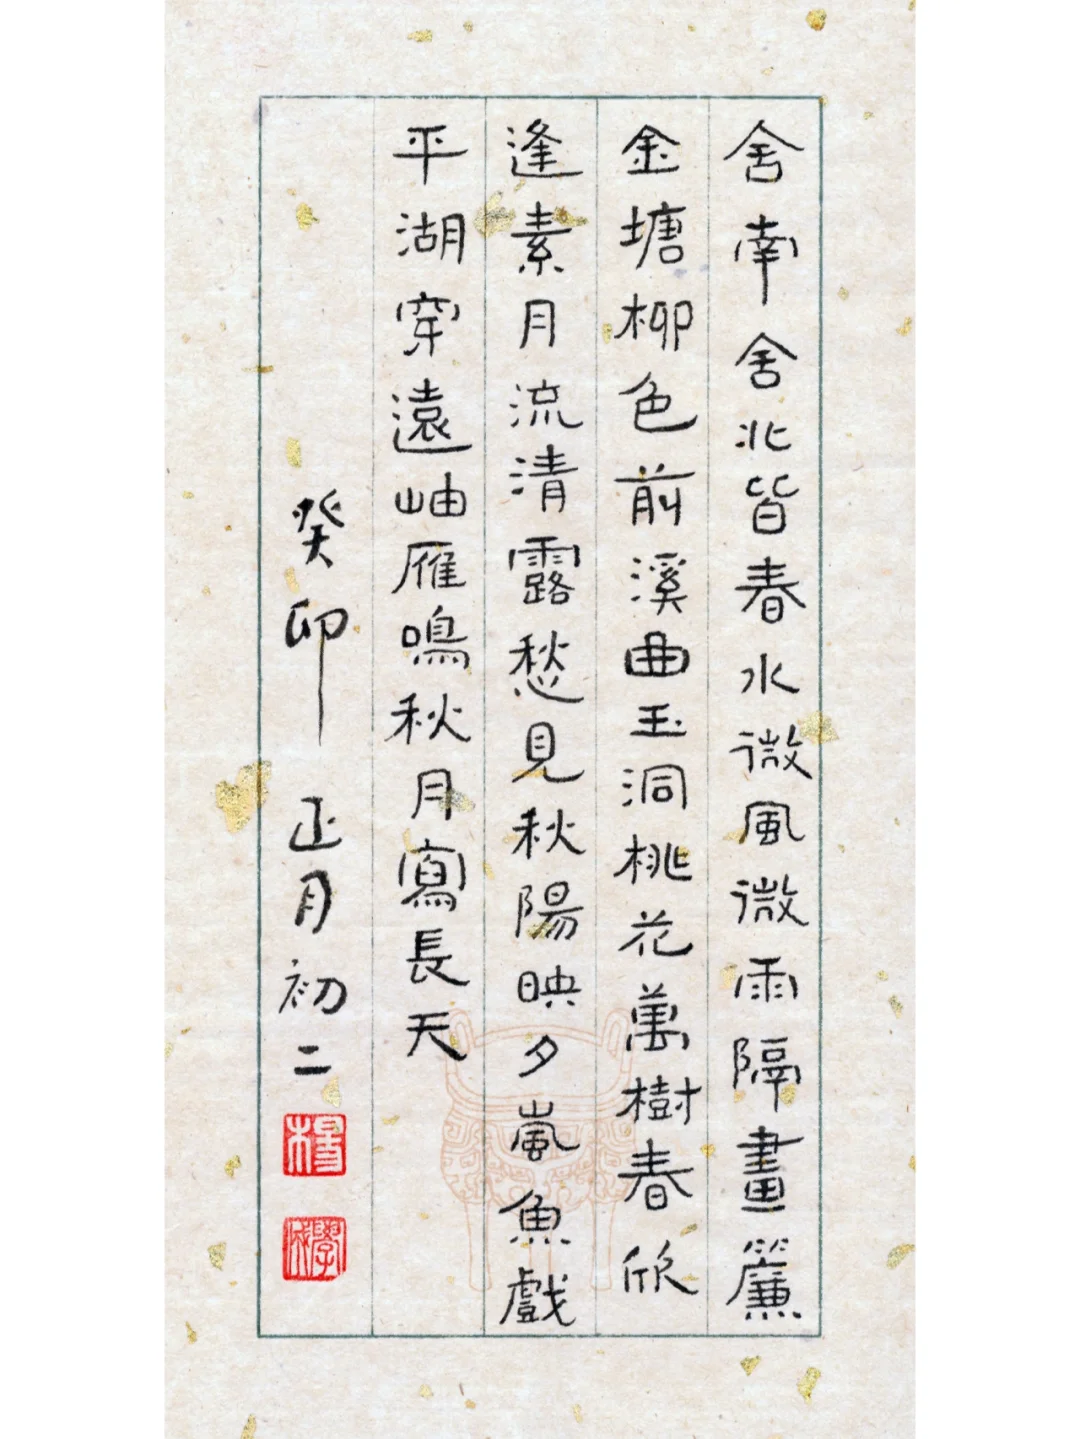 舍南舍北皆春水微風微雨隔畫簾
金塘柳色前溪曲玉洞桃花萬樹春欣
逢素月流清露愁見秋陽映夕嵐魚戲
平湖穿遠岫雁鳴秋月寫長天
癸卯正月初二
楊
學成